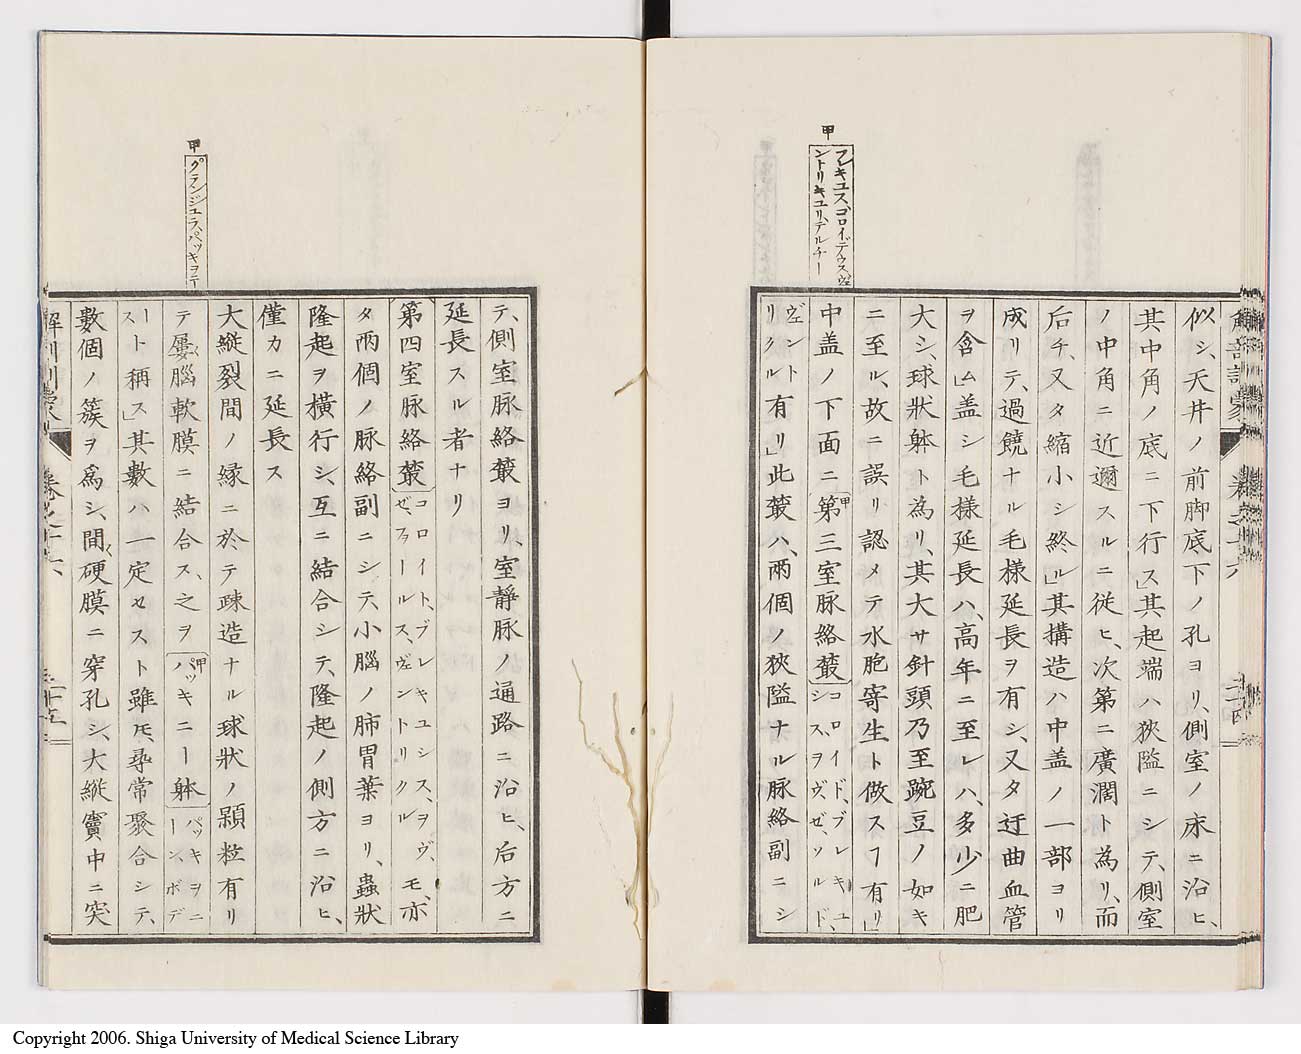 甲
アレキユス、ゴロイデウス、ヴェ
ントリキユリ、テルチー
似シ、天井ノ前脚底下ノ孔ヨリ、側室ノ床ニ沿ヒ、
其中角ノ底ニ下行ス」其起端ハ狹隘ニシテ、側室
ノ中角ニ近邇スルニ従ヒ、次第ニ廣濶ト為リ、而
后チ、又タ縮小シ終ル」其構造ハ中盖ノ一部ヨリ
成リテ、過饒ナル毛様延長ヲ有シ、又タ迂曲血管
ヲ含ム」盖シ毛様延長ハ、高年ニ至レハ、多少ニ肥
大シ、球狀躰ト為リ、其大サ針頭乃至豌豆ノ如キ
ニ至ル、故ニ誤リ認メテ水胞寄生ト做スフ有リ」
中盖ノ下面ニ甲第三室脉絡叢コロイド、プレキユ
シス、ヲヴ、ゼ、ソルド、
ヴェント
リクル有リ」此叢ハ、兩個ノ狹隘ナル脉絡副ニシ
テ、側室脉絡叢ヨリ、室静脉ノ通路ニ沿ヒ、后方ニ
延長スル者ナリ
第四室脉絡叢コロイト、プレキユシス、ヲヴ、
ゼ、ファールス、ヴェントリクル
モ、亦
タ兩個ノ脉絡副ニシテ、小腦ノ肺胃葉ヨリ、蟲狀
隆起ヲ横行シ、互ニ結合シテ、隆起ノ側方ニ沿ヒ、
僅カニ延長ス
甲
グランジユラ、パッキヲニー
大縱裂間ノ縁ニ於テ疎造ナル球狀ノ顆粒有リ
テ屢腦軟膜ニ結合ス、之ヲ甲パッキニー躰パッキヲニ
ーン、ボデ
ー
スト稱ス」其數ハ一定セスト雖モ、尋常聚合シテ、
數個ノ簇ヲ爲シ、間硬膜ニ穿孔シ、大縱竇中ニ突